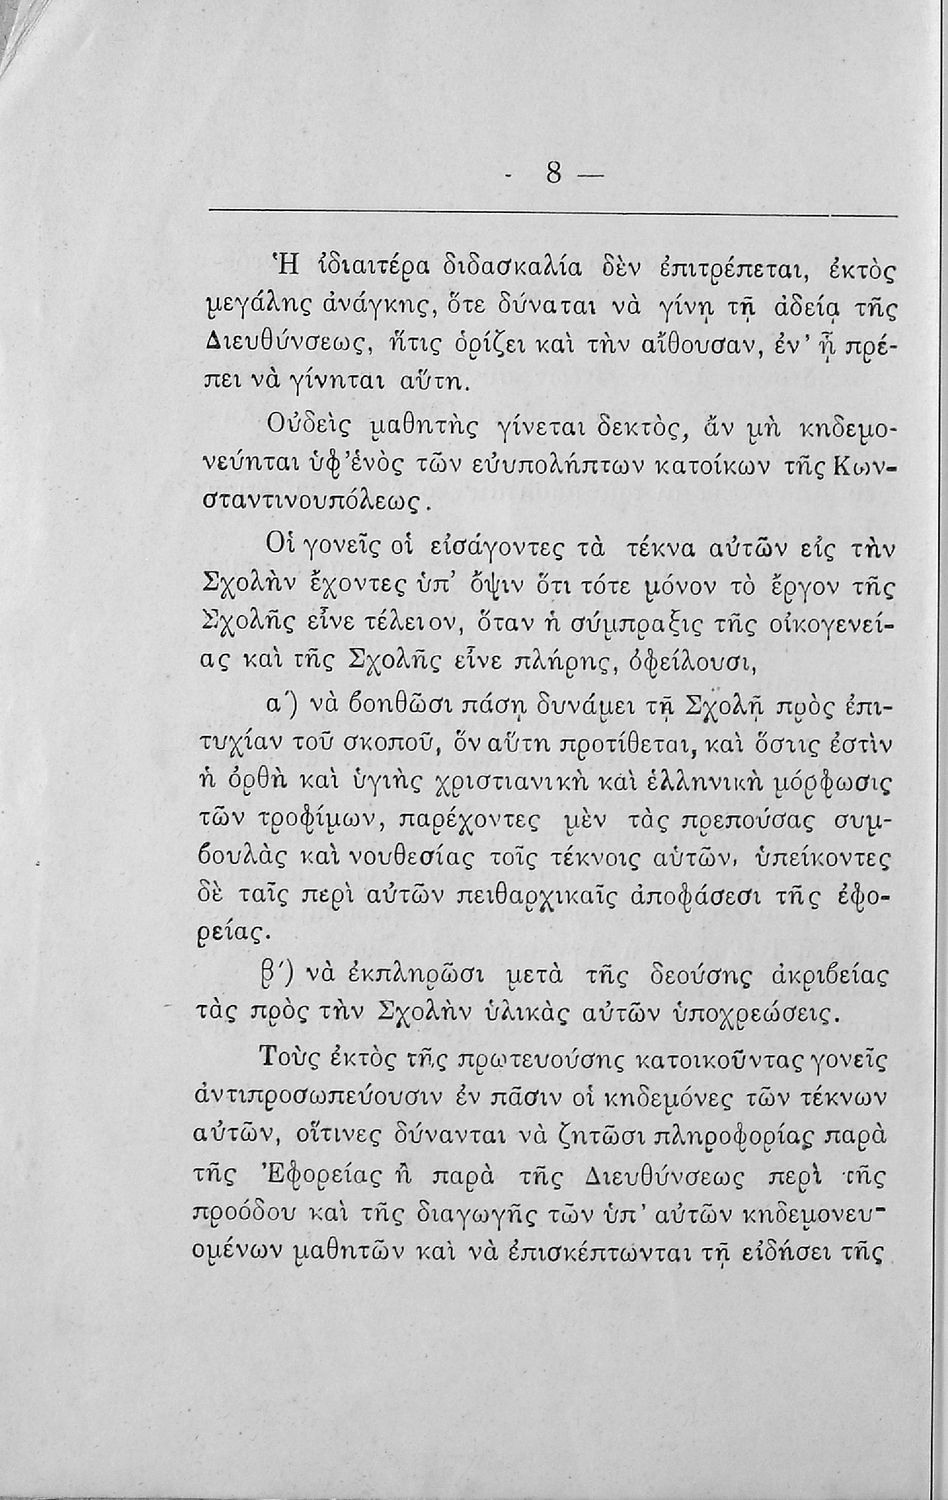 - 8 —
Ἡ ἰδιαιτέρα διδασκαλία δὲν ἐπιτρέπεται, ἐκτὸς
μεγάλης ἀνάγκης, ὅτε δύναται νὰ γίνῃ τῇ ἀδείᾳ τῆς
Διευθύνσεως, ἥτις ὁρίζει καὶ τὴν αἴθουσαν, ἐν’ ᾗ πρέ-
πει νὰ γίνηται αὕτη.
Οὐδεὶς μαθητὴς γίνεται δεκτὸς, ἄν μὴ κηδεμο-
νεύηται ὑφ’ἑνὸς τῶν εὐυπολήπτων κατοίκων τῆς Κων-
σταντινουπόλεως.
Οἱ γονεῖς οἱ εἰσάγοντες τὰ τέκνα αὐτῶν εἰς τὴν
Σχολὴν ἔχοντες ὑπ’ ὄψιν ὅτι τότε μόνον τὸ ἔργον τῆς
Σχολῆς εἶνε τέλειον, ὅταν ἡ σύμπραξις τῆς οἰκογενεί-
ας καὶ τῆς Σχολῆς εἶνε πλήρης, ὀφείλουσι,
α΄) νὰ βοηθῶσι πάσῃ δυνάμει τῇ Σχολῇ πρὸς ἐπι-
τυχίαν τοῦ σκοποῦ, ὅν αὕτη προτίθεται, καὶ ὅστις ἐστὶν
ἡ ὀρθὴ καὶ ὑγιὴς χριστιανικὴ καὶ ἑλληνικὴ μόρφωσις
τῶν τροφίμων, παρέχοντες μὲν τὰς πρεπούσας συμ-
βουλὰς καὶ νουθεσίας τοῖς τέκνοις αὑτῶν, ὑπείκοντες
δὲ ταῖς περὶ αὐτῶν πειθαρχικαῖς ἀποφάσεσι τῆς ἐφο-
ρείας.
β΄) νὰ ἐκπληρῶσι μετὰ τῆς δεούσης ἀκριβείας
τὰς πρὸς τὴν Σχολὴν ὑλικὰς αὐτῶν ὑποχρεώσεις.
Τοὺς ἐκτὸς τῆς πρωτευούσης κατοικοῦντας γονεῖς
ἀντιπροσωπεύουσιν ἐν πᾶσιν οἱ κηδεμόνες τῶν τέκνων
αὐτῶν, οἵτινες δύνανται νὰ ζητῶσι πληροφορίας παρὰ
τῆς Ἐφορείας ἢ παρὰ τῆς Διευθύνσεως περὶ τῆς
προόδου καὶ τῆς διαγωγῆς τῶν ὑπ’ αὐτῶν κηδεμονευ-
ομένων μαθητῶν καὶ νὰ ἐπισκέπτωνται τῇ εἰδήσει τῆς